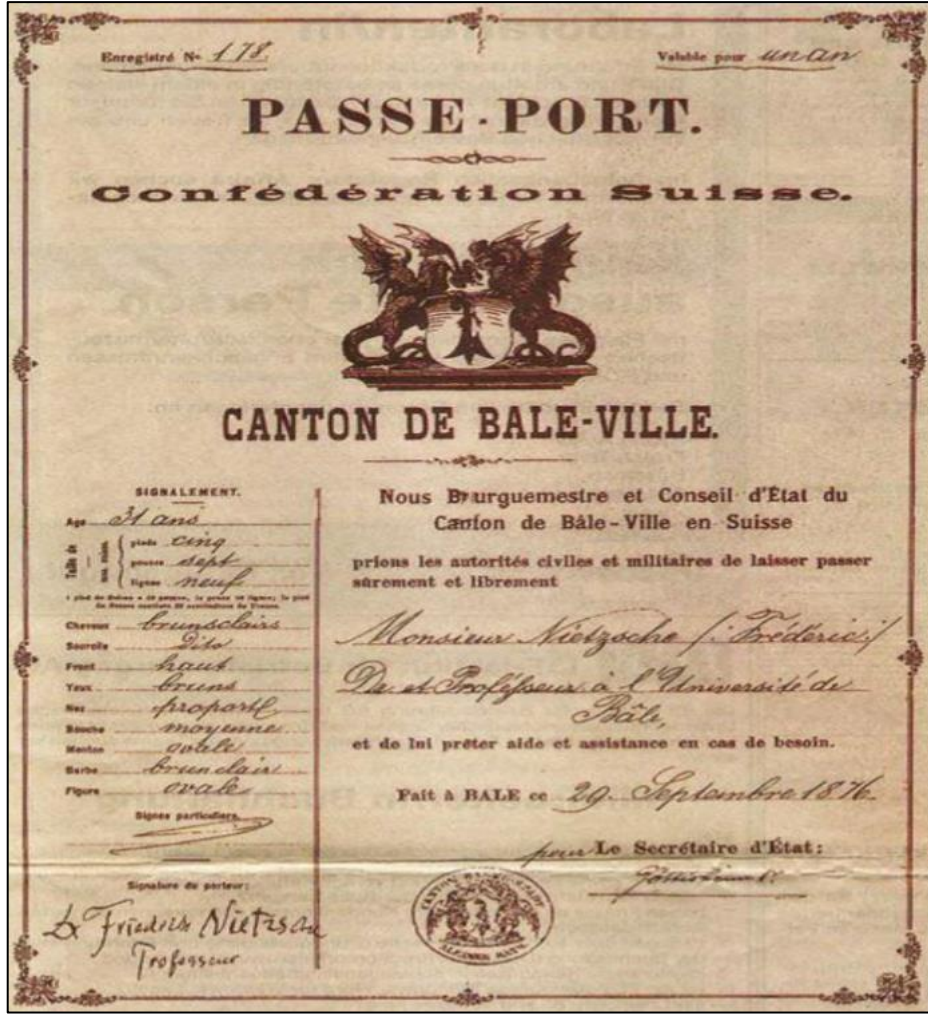 Enregistré No 178.
Valable pour un an
PASSE-PORT.
Confédération Suisse.
CANTON DE BALE-VILLE.
SIGNALEMENT.
Age 31 ans
Taille de
pieds cinq
pouces sept
lignes neuf
Cheveux brunsclairs
Sourcils dito
Front haut
Yeux bruns
Nez proport
Bouche moyenne
Menton ovale
Barbe brunclair
Figure ovale
Signes particuliers.
Signature du porteur:
Dr Friedrich Nietzsche
Professeur
Nous Bourguemestre et Conseil d'État du
Canton de Bâle-Ville en Suisse
prions les autorités civiles et militaires de laisser passer
sûrement et librement
Monsieur Nietzsche /: Fréderic :/
Dr et Professeur à l'Université de
Bâle,
et de lui prêter aide et assistance en cas de besoin.
Fait à BALE ce 29. Septembre 1876.
pour Le Secrétaire d'État: